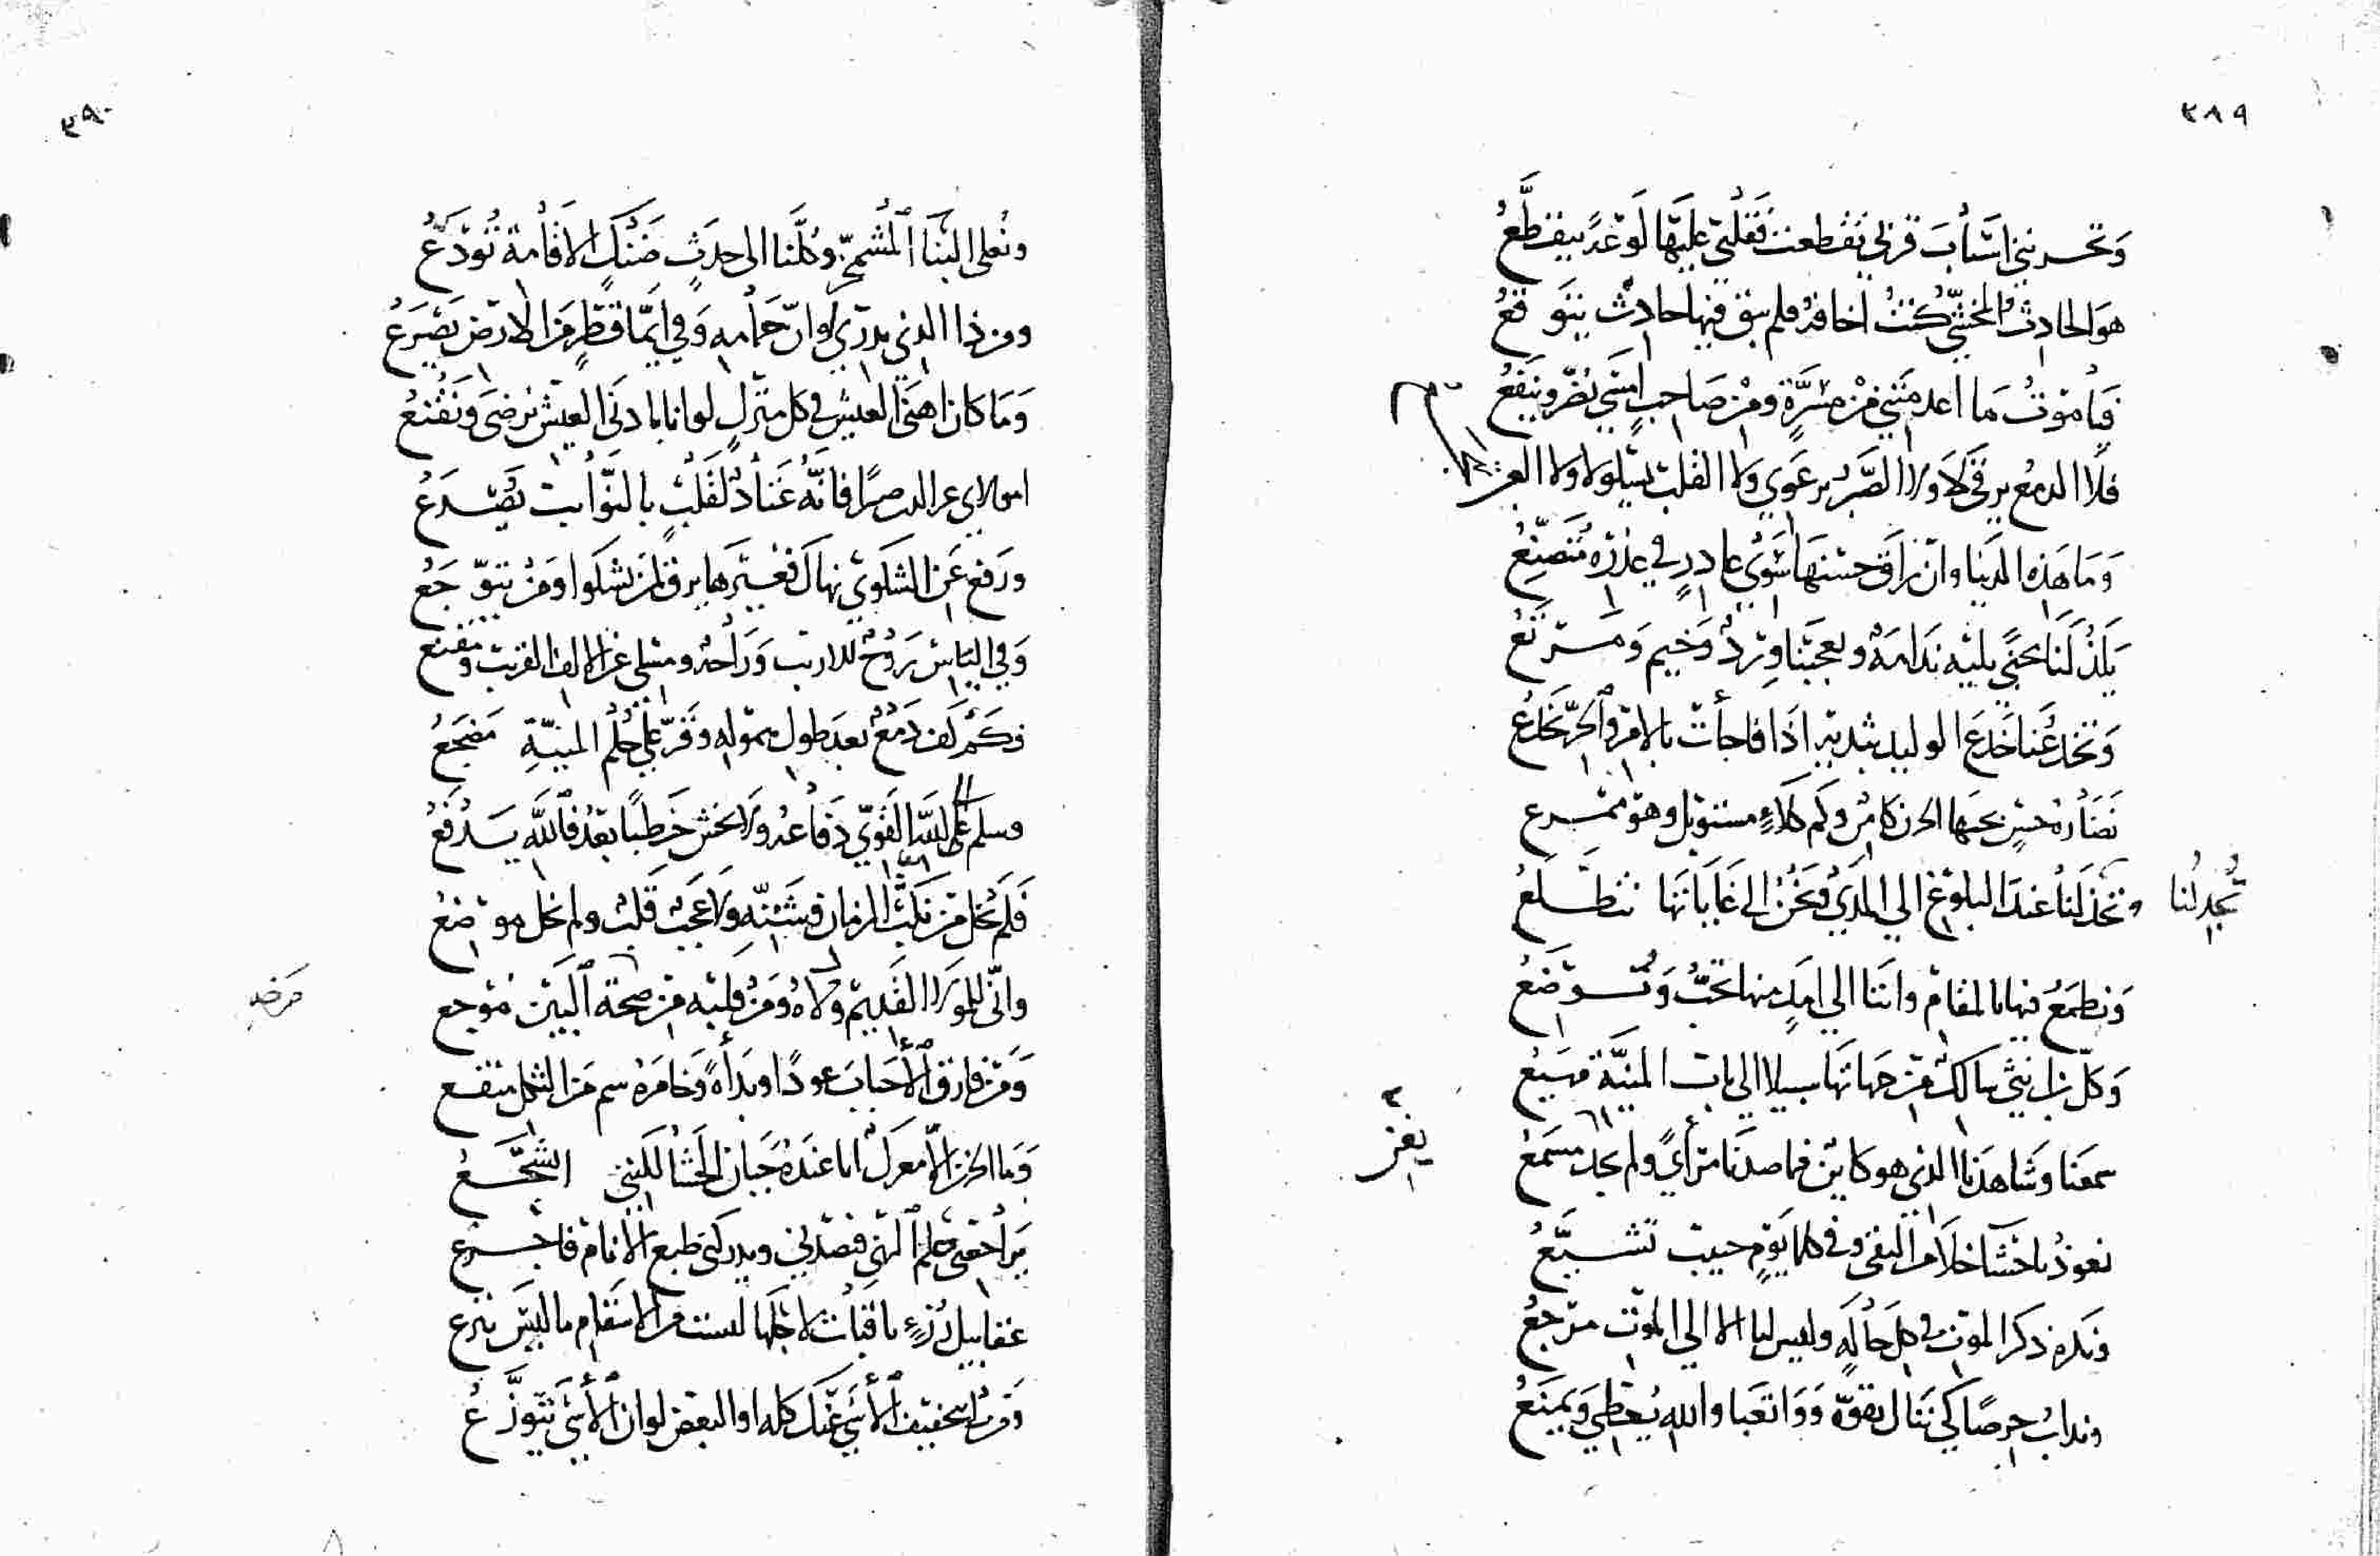 ٣٨٩
وتحسر نبني اسباب قربي تقطعت فقلبي عليها لوعة يتقطع
هو الحادث المخشي كنت اخافه فلم يبق فيها حادث يتوقع
فيا موت ما اعدمتني من مسرة ومن صاحب امسى يضر وينفع
فلا الدمع يرقى لا ولا الصبر يرعوي ولا القلب يسلو لا ولا العين
وما هذه الدنيا وان راق حسنها سوى غادر في عذره متصنع
يلذ لنا مجنى يليه ندامة ويعجبنا ورد وخيم ومرتع
وتخدعنا خدع الوليد بثديه اذا فاجأت بالامر والحر يخدع
نضارة حسن تحتها الحزن كامن وكم كلاء مستوبل وهو ممرع
تجد لنا
وتجد لنا عند البلوغ الى المدى ونحن الى غاياتها نتطلع
ونطمع فيها بالمقام واننا الى امد منها نخب ونوضع
وكل بني سالك من جهاتها سبيلا الى باب المنية مهيع
سمعنا وشاهدنا الذي هو كاين فما صدنا مرأى ولم يجد مسمع
يغن
نعوذ باحشا خلا من التقى وفي كل يوم حبيب نشيع
ونكره ذكر الموت في كل حالة وليس لنا الا الى الموت مرجع
وندأب حرصا كي ننال بقوة ووانعبا والله يعطي ويمنع
٣٩٠
ونعلى البنا المشمخر وكلنا الى جدث ضنك الاقامة نودع
ومن ذا الذي يدري اوان حمامه وفي ايما قطر من الارض يصرع
وما كان اهنى العيش في كل منزل لو انا بادنى العيش نرضى ونقنع
امولاي عز الدين صبرا فانه عتاد لقلب بالنوائب يصدع
ورفع عن الشكوى نهاك فغيرها يرق لمن يشكوا ومن يتوجع
وفي الياس روح للاريب وراحة ومسلى عن الالف القريب ومقنع
فكم كف دمع بعد طول هموله وقر على حلم المنية مضجع
وسلم على الله القوي دفاعه ولا تخش خطبا بعد فالله يدفع
فلم تخل من نكب الزمان وشتته ولا عجب قلب ولم يخل موضع
واني للمولى القديم ولاه ومن قلبه من صحة البين موجع
مرضه
ومن فارق الاحباب عودا وبدأة وخامره سم من الثكل منقع
وما الحزن الا معرك انا عنده جبان الحشا لكنني اتشجع
يراجعني حلم النهى فتصدني ويدركني طبع الانام فاجزع
عقابيل رزء باقيات لاجلها ليست من الاسقام ما ليس ينزع
ومن لي بتخفيف الاسى عنك كله او البعض لو ان الاسى يتوزع